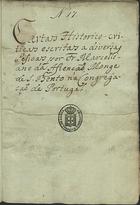 N 17
Cartas Historico-cri-
ticas escritas a diversas
Pessoas por Fr. Marceli-
ano da Ascenção Monge
de S. Bento na Congrega-
çaõ de Portugal